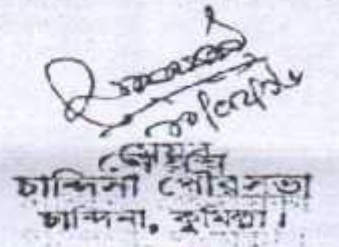 মেয়র
চান্দিনা পৌরসভা
চান্দিনা, কুমিল্লা।